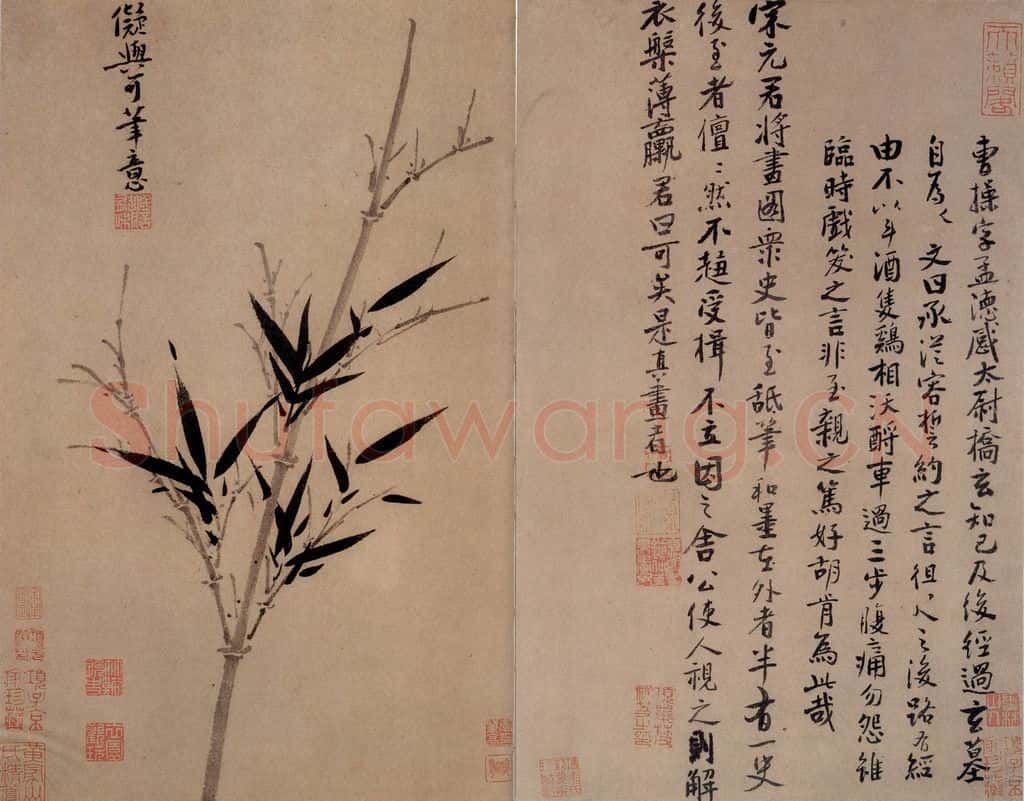 天籟閣
曹操字孟德感太尉橋玄知己及後經過玄墓
自為文曰承從容誓約之言徂之後路有經
由不以斗酒隻鷄相沃酹車過三步腹痛勿怨雖
臨時戲笑之言非至親之篤好胡肯為此哉
宋元君將畫圖衆史皆至舐筆和墨在外者半有一史
後至者儃〻然不趨受揖不立因之舍公使人視之則解
衣槃薄臝君曰可矣是真畫者也
儗與可筆意
Shufawang.cn